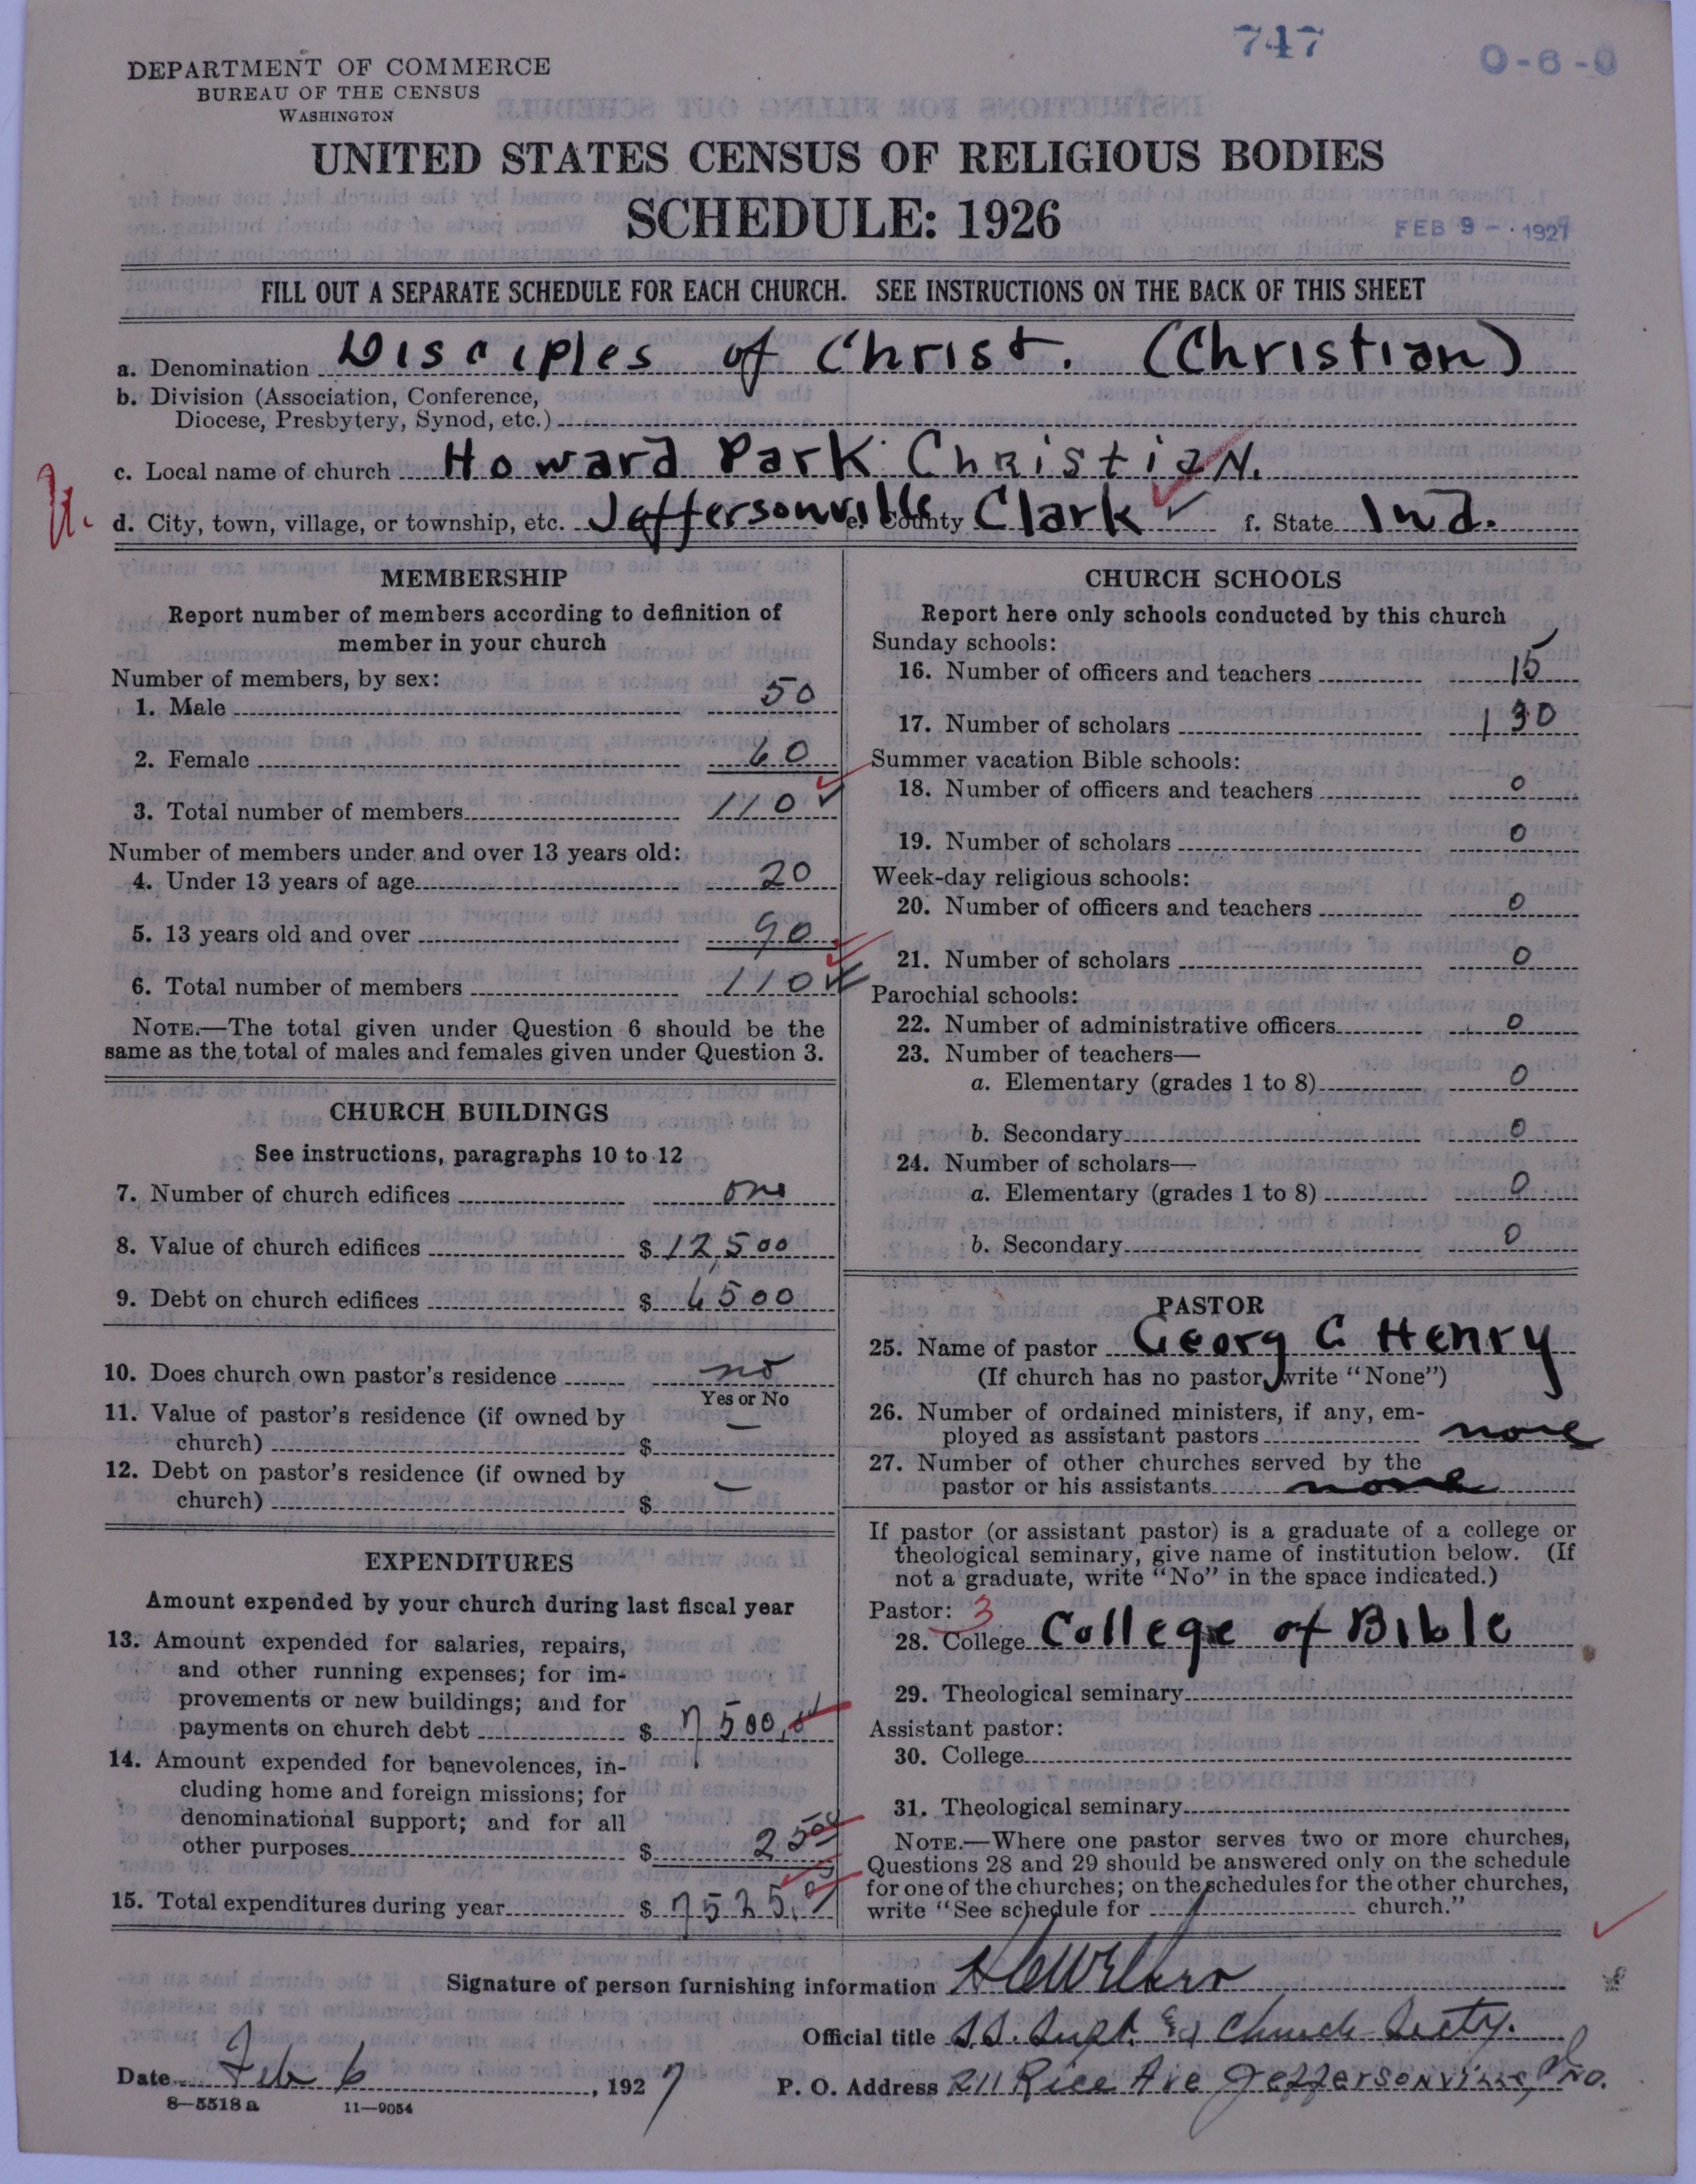 747
0-6-0
DEPARTMENT OF COMMERCE
BUREAU OF THE CENSUS
WASHINGTON
UNITED STATES CENSUS OF RELIGIOUS BODIES
SCHEDULE: 1926
FEB 9 - 1927
FILL OUT A SEPARATE SCHEDULE FOR EACH CHURCH. SEE INSTRUCTIONS ON THE BACK OF THIS SHEET
a. Denomination Disciples of Christ. (Christian)
b. Division (Association, Conference,
Diocese, Presbytery, Synod, etc.)
c. Local name of church Howard Park Christian.
d. City, town, village, or township, etc. Jeffersonville e. County Clark f. State Ind.
MEMBERSHIP
Report number of members according to definition of
member in your church
Number of members, by sex:
1. Male 50
2. Female 60
3. Total number of members 110
Number of members under and over 13 years old:
4. Under 13 years of age 20
5. 13 years old and over 90
6. Total number of members 110
NOTE.—The total given under Question 6 should be the
same as the total of males and females given under Question 3.
CHURCH BUILDINGS
See instructions, paragraphs 10 to 12
7. Number of church edifices one
8. Value of church edifices $ 12,500
9. Debt on church edifices $ 6500
10. Does church own pastor's residence no
Yes or No
11. Value of pastor's residence (if owned by
church) $ —
12. Debt on pastor's residence (if owned by
church) $ —
EXPENDITURES
Amount expended by your church during last fiscal year
13. Amount expended for salaries, repairs,
and other running expenses; for im-
provements or new buildings; and for
payments on church debt $ 7500,
14. Amount expended for benevolences, in-
cluding home and foreign missions; for
denominational support; and for all
other purposes $ 25 00
15. Total expenditures during year $ 7525,
CHURCH SCHOOLS
Report here only schools conducted by this church
Sunday schools:
16. Number of officers and teachers 15
17. Number of scholars 130
Summer vacation Bible schools:
18. Number of officers and teachers 0
19. Number of scholars 0
Week-day religious schools:
20. Number of officers and teachers 0
21. Number of scholars 0
Parochial schools:
22. Number of administrative officers 0
23. Number of teachers—
a. Elementary (grades 1 to 8) 0
b. Secondary 0
24. Number of scholars—
a. Elementary (grades 1 to 8) 0
b. Secondary 0
PASTOR
25. Name of pastor Georg C Henry
(If church has no pastor, write "None")
26. Number of ordained ministers, if any, em-
ployed as assistant pastors none
27. Number of other churches served by the
pastor or his assistants none
If pastor (or assistant pastor) is a graduate of a college or
theological seminary, give name of institution below. (If
not a graduate, write "No" in the space indicated.)
Pastor: 3
28. College College of Bible
29. Theological seminary
Assistant pastor:
30. College
31. Theological seminary
NOTE.—Where one pastor serves two or more churches,
Questions 28 and 29 should be answered only on the schedule
for one of the churches; on the schedules for the other churches,
write "See schedule for church."
Signature of person furnishing information
Official title S.S. Supt. & Church Secty.
Date Feb 6, 1927
P. O. Address 211 Rice Ave Jeffersonville, Ind.
8—5518 a 11—9054